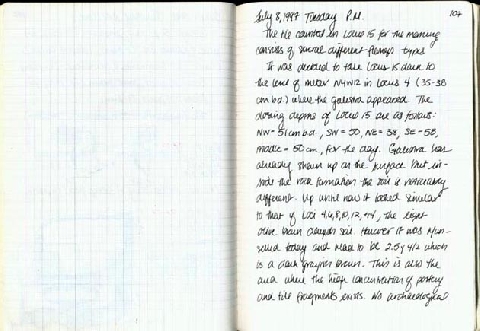 July 8, 1997 Tuesday P.M. 104
The tile counted in Locus 15 for the morning
consists of several different fabric types
It was decided to take Locus 15 down to
the level of meter N4W2 in Locus 4 (35-38
cm b.d.) where the galestra appeared. The
closing depths of Locus 15 are as follows:
NW = 51 cm b.d., SW = 50, NE = 38, SE = 58,
middle = 50 cm, for the day. Galestra has
already shown up on the surface but in-
side the rock formation the soil is noticeably
different. Up until now it looked similar
to that of Loci 4,6,8,10,12, +14, the light
olive brown clayish soil. However it was Mun-
selled today and read to be 2.5y 4/2 which
is a dark grayish brown. This is also the
area where the high concentration of pottery
and tile fragments exists. No archaeological